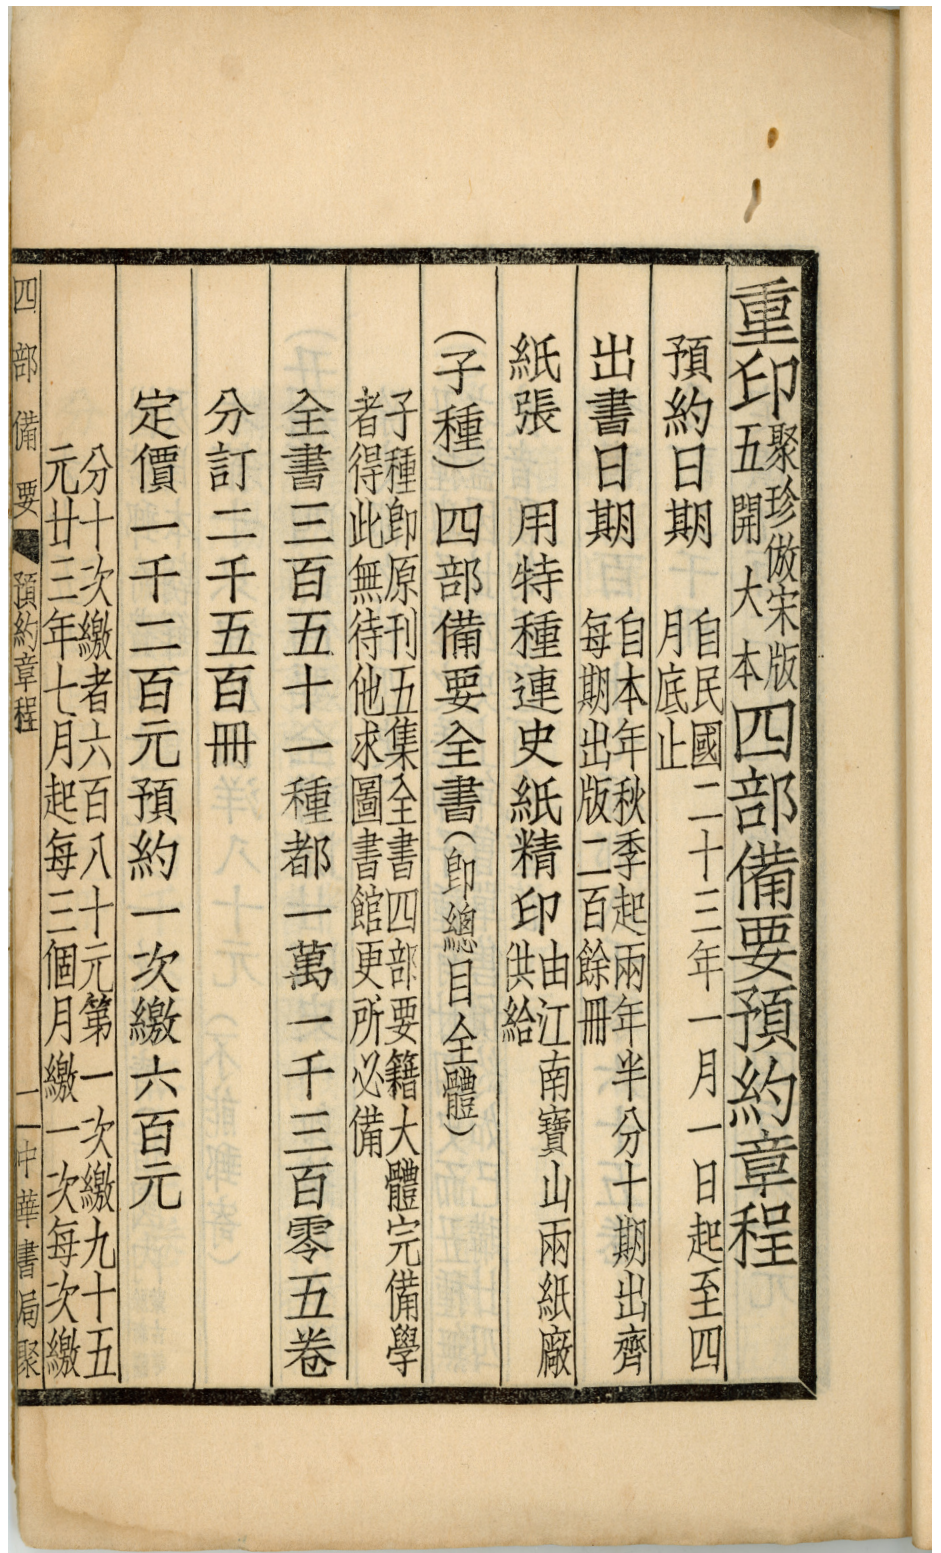 重印聚珍倣宋版五開大本四部備要預約章程
預約日期 自民國二十三年一月一日起至四
月底止
出書日期 自本年秋季起兩年半分十期出齊
每期出版二百餘冊
紙張 用特種連史紙精印由江南寶山兩紙廠
供給
(子種)四部備要全書(卽總目全體)
子種卽原刊五集全書四部要籍大體完備學
者得此無待他求圖書館更所必備
全書三百五十一種都一萬一千三百零五卷
分訂二千五百冊
定價一千二百元預約一次繳六百元
分十次繳者六百八十元第一次繳九十五
元廿三年七月起每三個月繳一次每次繳
四部備要 預約章程 一 中華書局聚